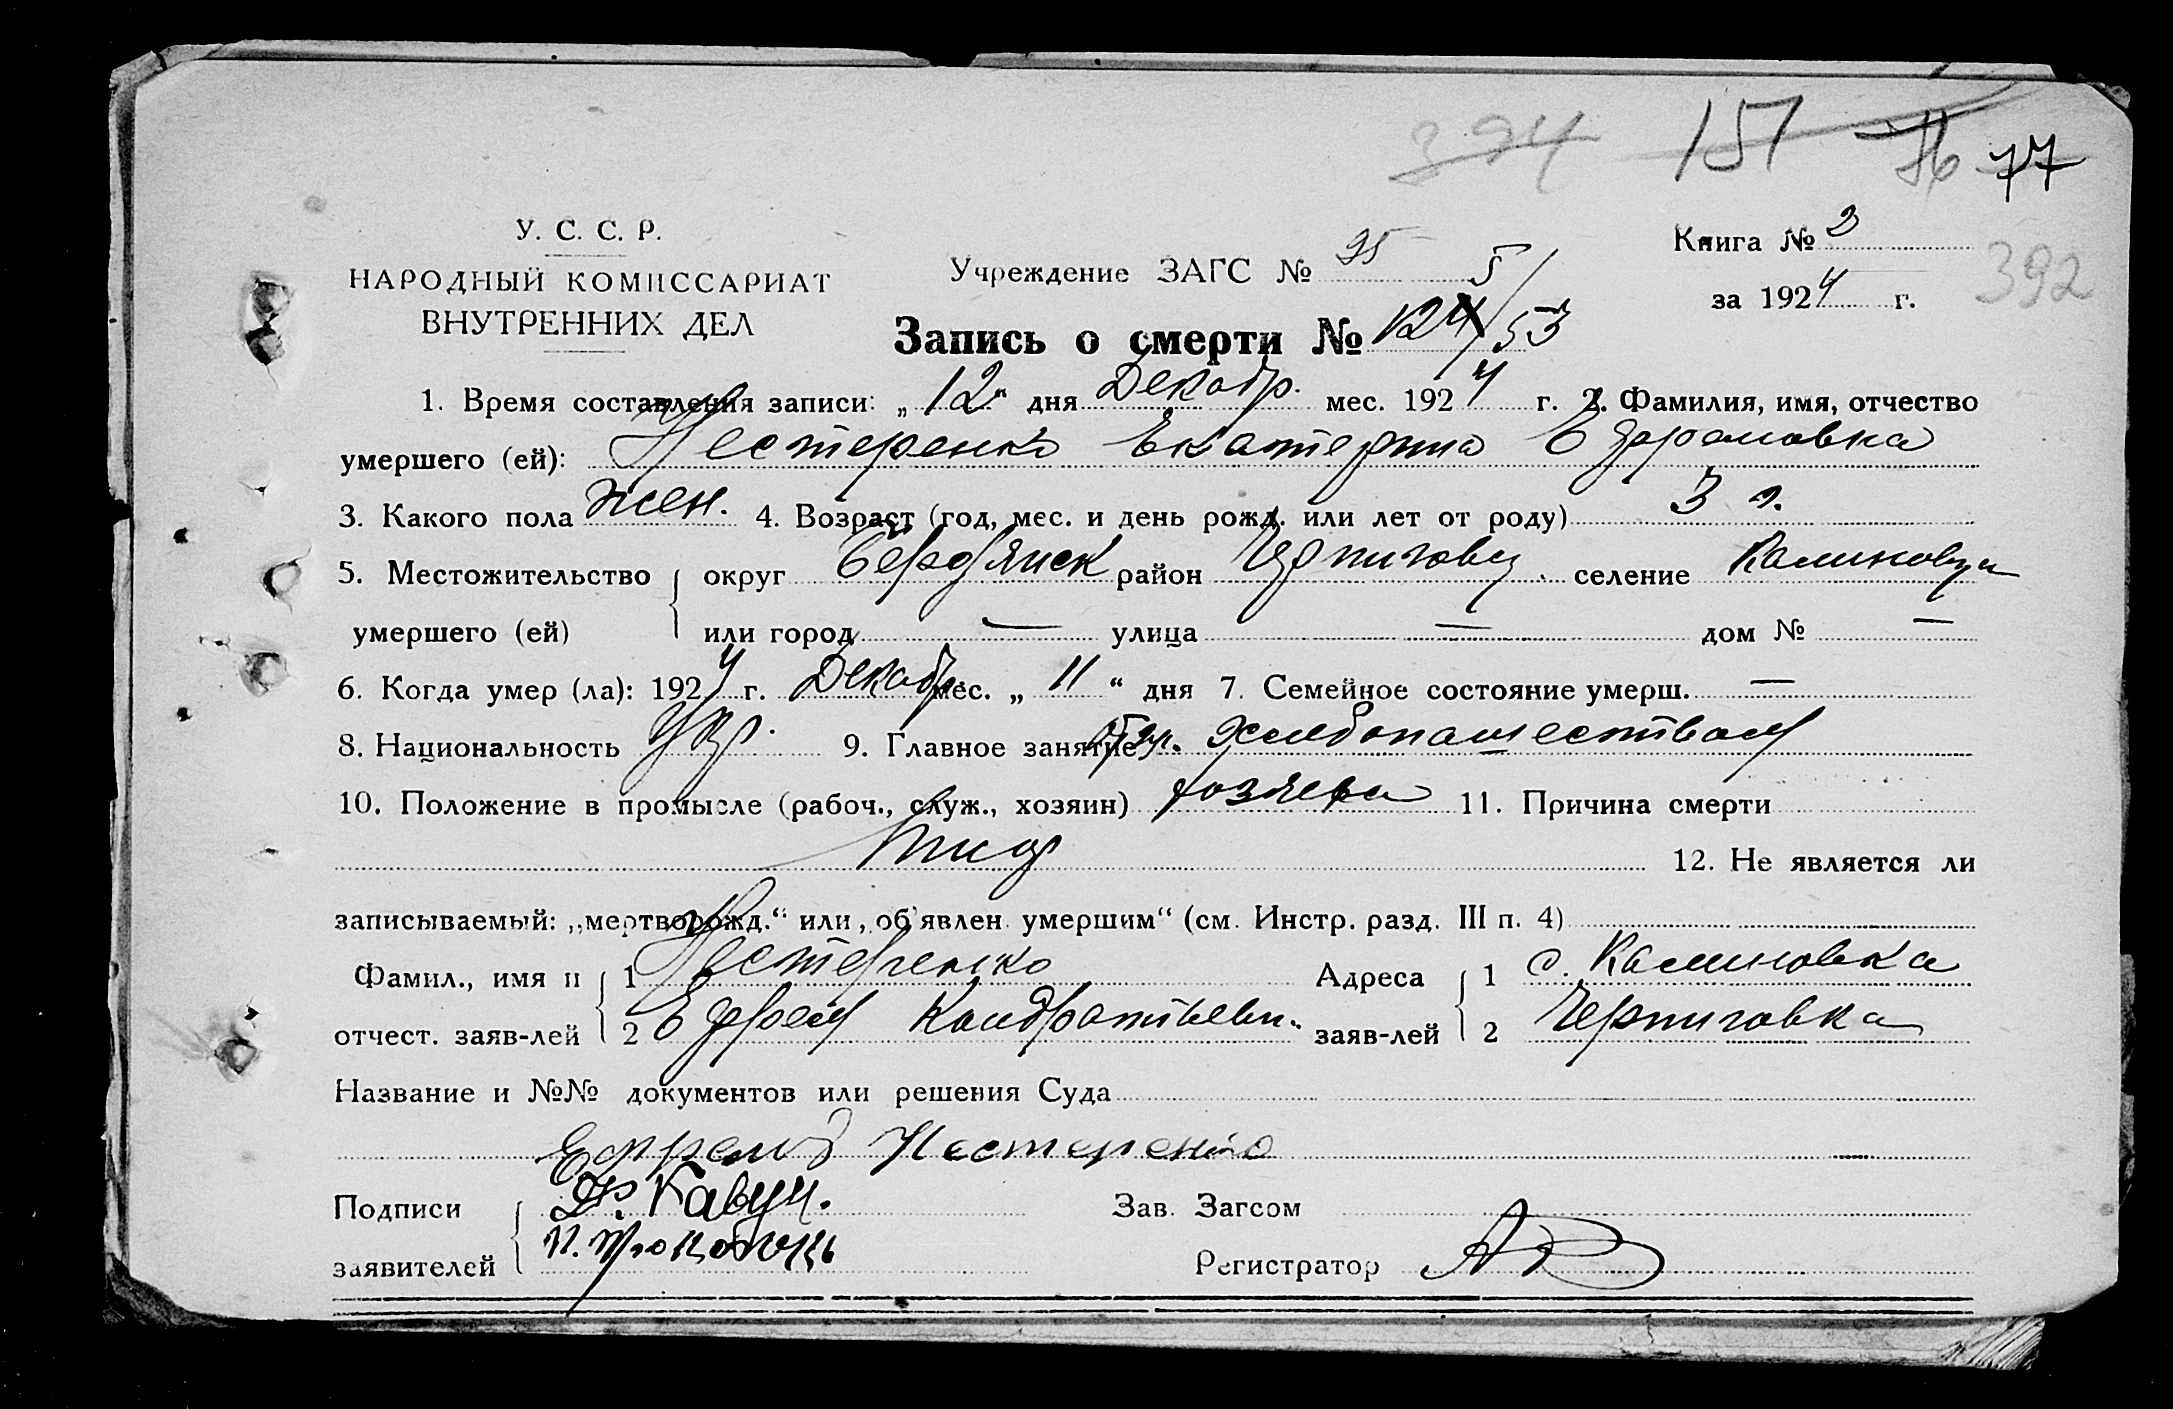 394 151 76 77
У. С. С. Р.
НАРОДНЫЙ КОМИССАРИАТ
ВНУТРЕННИХ ДЕЛ
Учреждение ЗАГС № 35
Книга № 2
за 1924 г.
392
Запись о смерти № 124/53
1. Время составления записи: „12“ дня Декабр. мес. 1924 г. 2. Фамилия, имя, отчество
умершего (ей): Нестеренко Екатерина Ефремовна
3. Какого пола жен. 4. Возраст (год, мес. и день рожд. или лет от роду) 3 г.
5. Местожительство округ Бердянск район Черниговк. селение Калиновка
умершего (ей) или город — улица — дом № —
6. Когда умер (ла): 1924 г. Декабр. мес. „11“ дня 7. Семейное состояние умерш. —
8. Национальность Укр. 9. Главное занятие хлебопашеством
10. Положение в промысле (рабоч., служ., хозяин) хозяева 11. Причина смерти
Тиф 12. Не является ли
записываемый: „мертворожд.“ или „об'явлен умершим“ (см. Инстр. разд. III п. 4)
Фамил., имя и 1 Нестеренко Адреса 1 с. Калиновка
отчест. заяв-лей 2 Ефрем Кондратьеви. заяв-лей 2 Черниговка
Название и №№ документов или решения Суда
Ефремъ Нестеренко
Подписи Ф. Кавун. Зав. Загсом
заявителей Регистратор